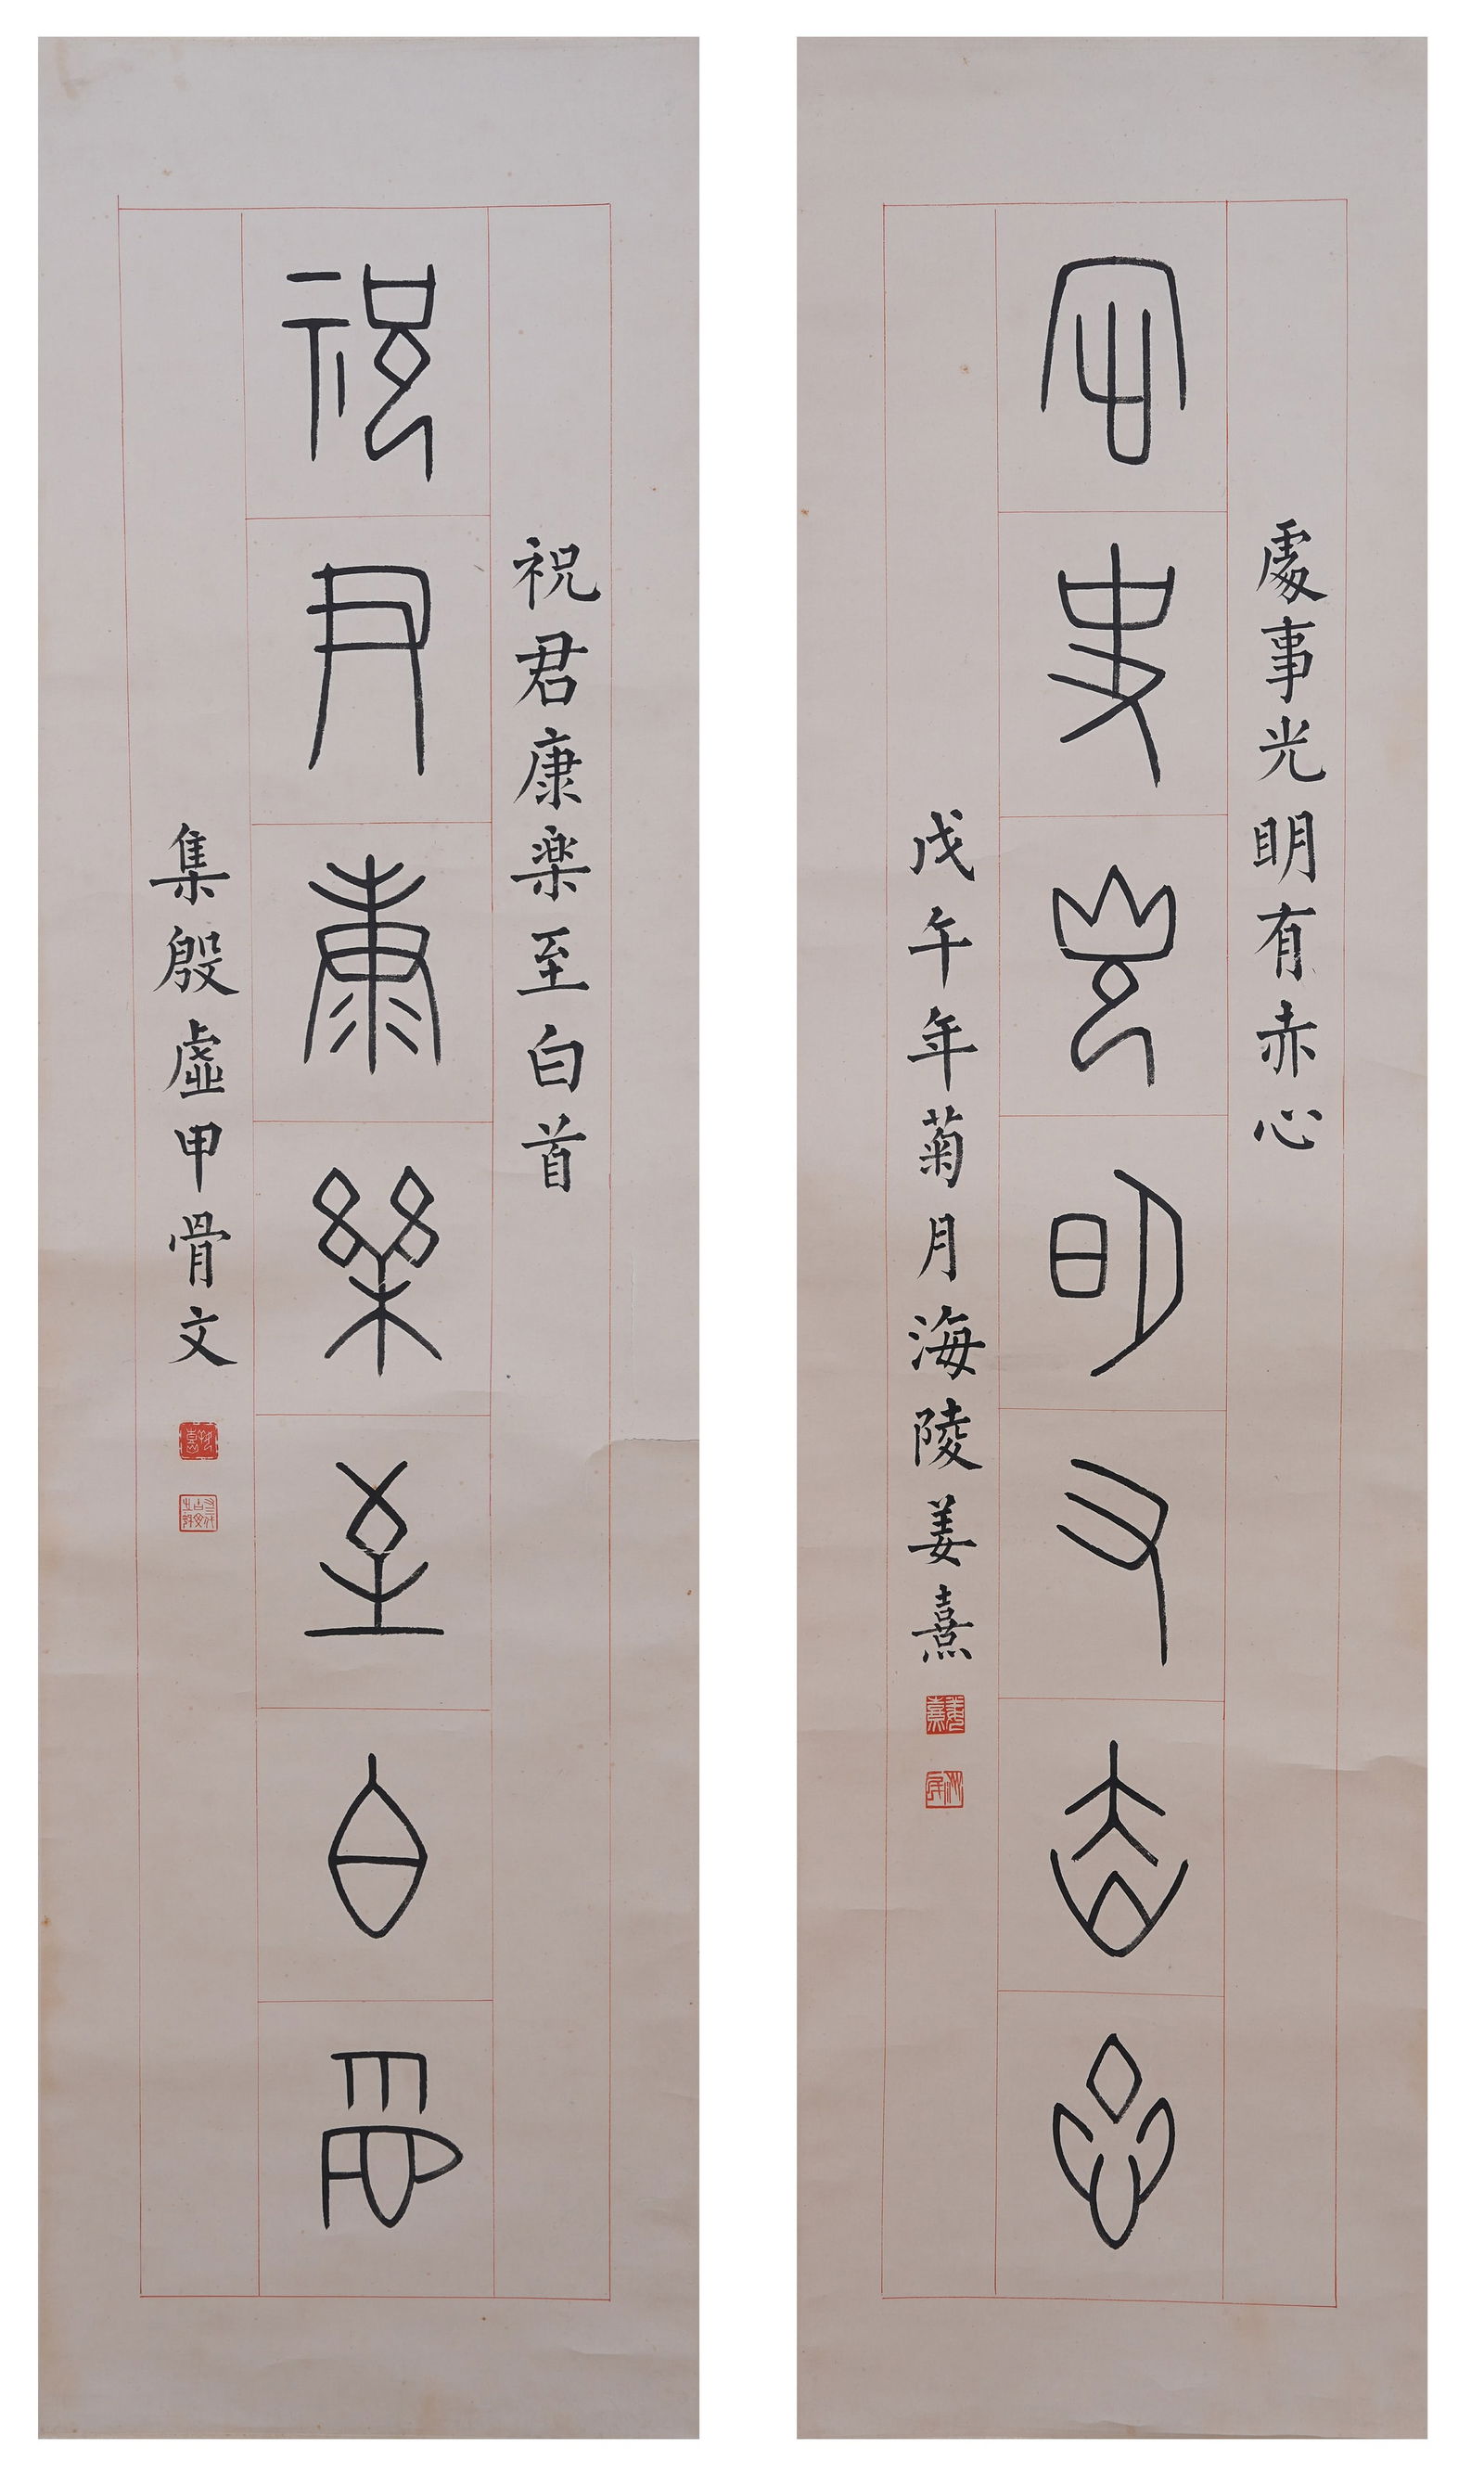 處事光明有赤心
處事光明有赤心
戊午年菊月海陵姜熹
姜熹
祝君康楽至白首
祝君康楽至白首
集殷虛甲骨文